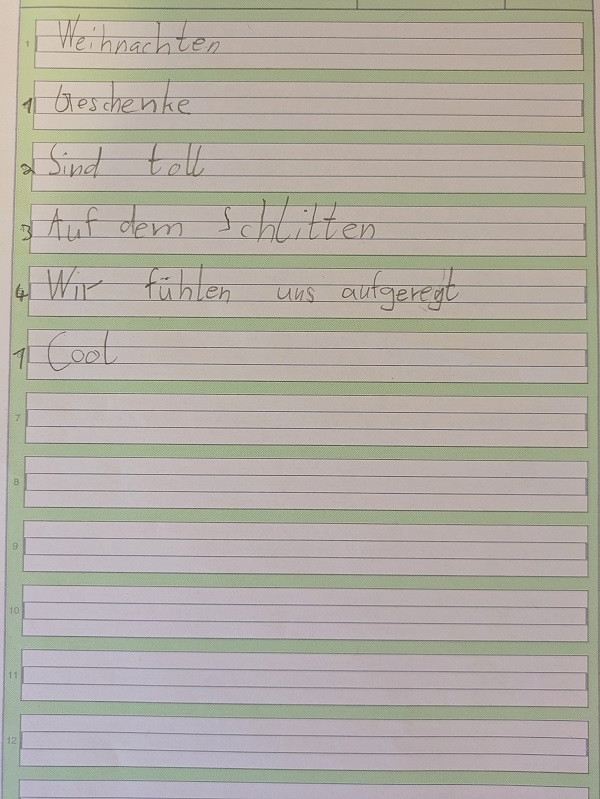 1 Weihnachten
1 Geschenke
2 Sind toll
3 Auf dem Schlitten
4 Wir fühlen uns aufgeregt
1 Cool
7
8
9
10
11
12